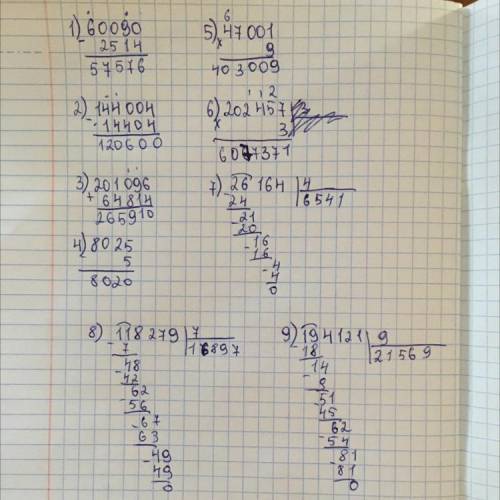 1) 60090
- 2514
57576
2) 144004
- 14404
120600
3) 201096
+ 64814
265910
4) 8025
- 5
8020
6
5) 47001
x 9
403009
1 1 2
6) 202457
x 3
607371
7) 26164 | 4
- 24 | 6541
21
- 20
16
- 16
4
- 4
0
8) 118279 | 7
- 7 | 16897
48
- 42
62
- 56
67
- 63
49
- 49
0
9) 194121 | 9
- 18 | 21569
14
- 9
51
- 45
62
- 54
81
- 81
0